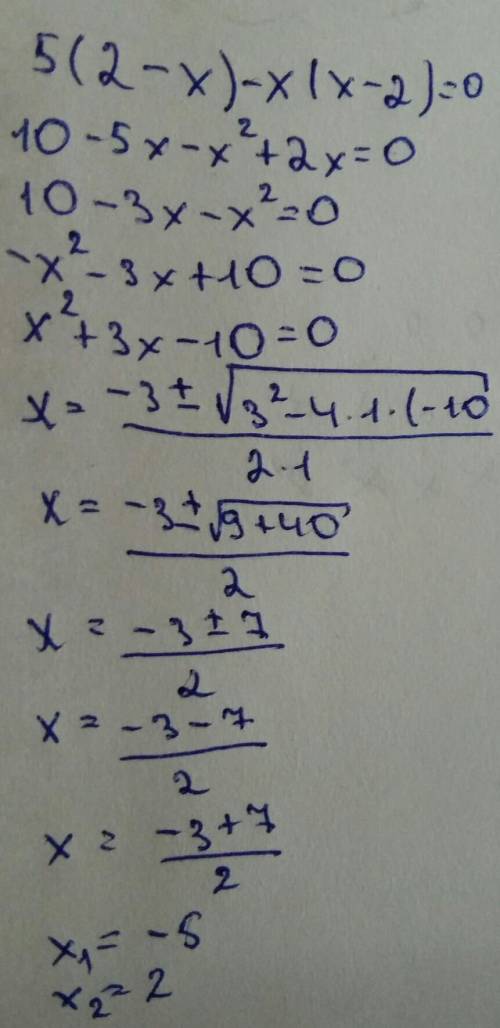 5(2-x)-x(x-2)=0
10-5x-x²+2x=0
10-3x-x²=0
-x²-3x+10=0
x²+3x-10=0
x=\frac{-3±\sqrt{3²-4·1·(-10}}{2·1}
x=\frac{-3±\sqrt{9+40}}{2}
x=\frac{-3±7}{2}
x=\frac{-3-7}{2}
x=\frac{-3+7}{2}
x₁=-5
x₂=2